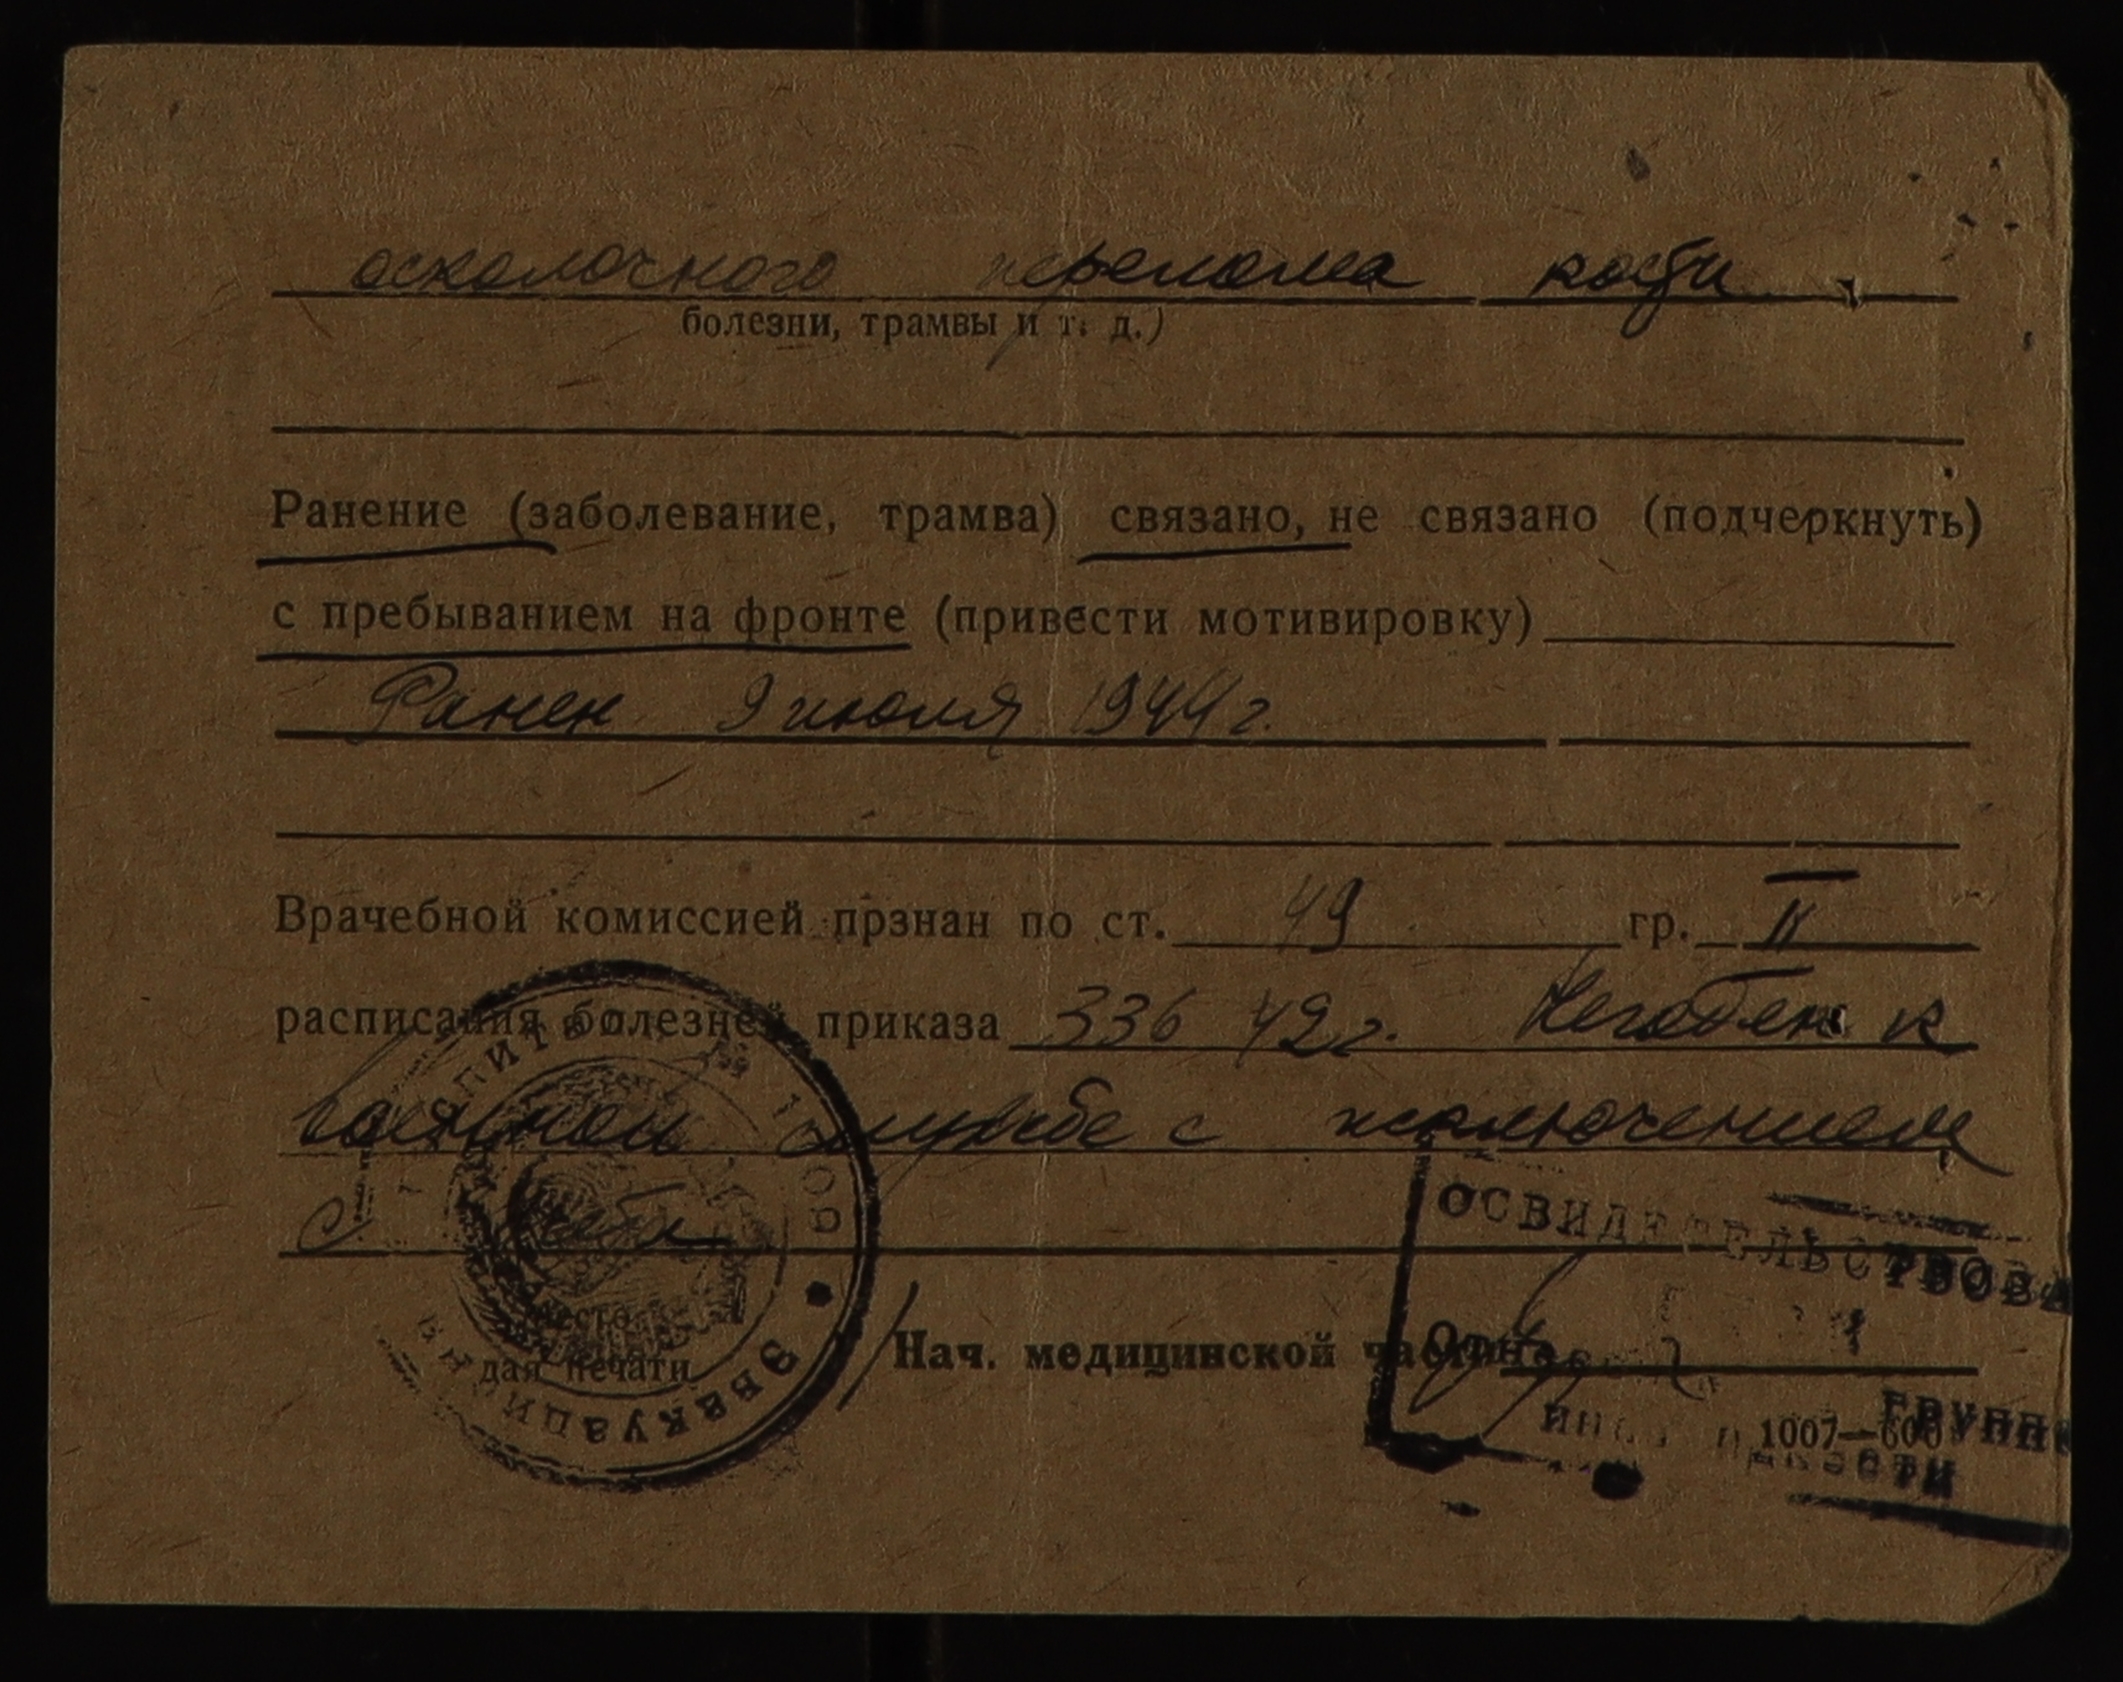 осколочного перелома кости
болезни, трамвы и т. д.)
Ранение (заболевание, трамва) связано, не связано (подчеркнуть)
с пребыванием на фронте (привести мотивировку)
Ранен 9 июля 1944 г.
Врачебной комиссией прзнан по ст. 49 гр. II
расписания болезней приказа 336 42 г. Негоден к
военной службе с исключением
с учета
Место
для печати
Эвакуацион
ОСВИДЕТЕЛЬСТВОВА
Нач. медицинской части
ГРУПП
1007—600